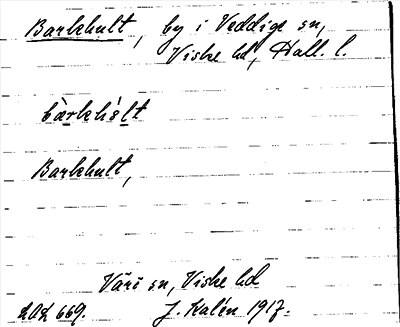 Barkhult, by i Veddige sn,
Viske hd, Hall. l.
bàrkhúlt
Barkhult,
Värö sn, Viske hd
LOL 669. J. Kalén 1917.